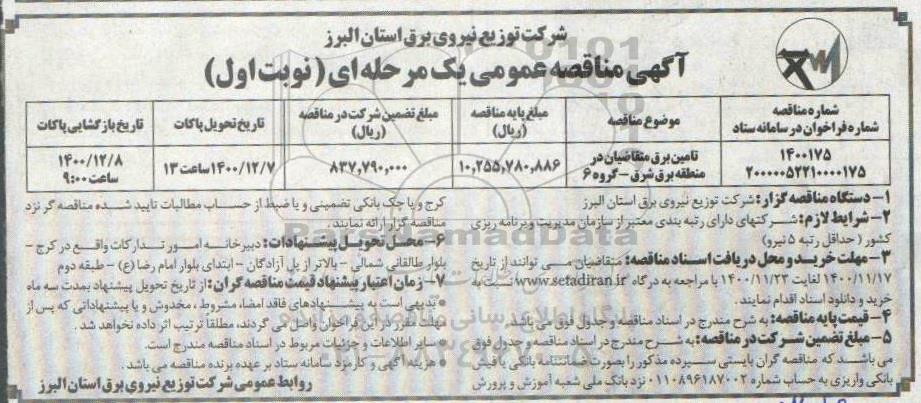 شرکت توزیع نیروی برق استان البرز
آگهی مناقصه عمومی یک مرحله ای (نوبت اول)
شماره مناقصه
شماره فراخوان در سامانه ستاد
موضوع مناقصه
مبلغ پایه مناقصه
(ریال)
مبلغ تضمین شرکت در مناقصه
(ریال)
تاریخ تحویل پاکات
تاریخ بازگشایی پاکات
۱۴۰۰۱۷۵
۲۰۰۰۰۰۵۲۲۱۰۰۰۰۱۷۵
تامین برق متقاضیان در
منطقه برق شرق - گروه ۶
۱۰,۲۵۵,۷۸۰,۸۸۶
۸۳۷,۷۹۰,۰۰۰
۱۴۰۰/۱۲/۷ ساعت ۱۳
۱۴۰۰/۱۲/۸
ساعت ۹:۰۰
۱- دستگاه مناقصه گزار: شرکت توزیع نیروی برق استان البرز
۲- شرایط لازم: شرکتهای دارای رتبه بندی معتبر از سازمان مدیریت وبرنامه ریزی
کشور (حداقل رتبه ۵ نیرو)
۳- مهلت خرید و محل دریافت اسناد مناقصه: متقاضیان می توانند از تاریخ
۱۴۰۰/۱۱/۱۷ لغایت ۱۴۰۰/۱۱/۲۳ با مراجعه به درگاه www.setadiran.ir نسبت به
خرید و دانلود اسناد اقدام نمایند.
۴- قیمت پایه مناقصه: به شرح مندرج در اسناد مناقصه و جدول فوق می باشد.
۵- مبلغ تضمین شرکت در مناقصه: به شرح مندرج در اسناد مناقصه و جدول فوق
می باشد که مناقصه گران بایستی سپرده مذکور را بصورت ضمانتنامه بانکی یا فیش
بانکی واریزی به حساب شماره ۰۱۱۰۸۹۶۱۸۷۰۰۲ نزد بانک ملی شعبه آموزش و پرورش
کرج و یا چک بانکی تضمینی و یا ضبط از حساب مطالبات تایید شده مناقصه گر نزد
مناقصه گزار ارائه نمایند.
۶- محل تحویل پیشنهادات: دبیرخانه امور تدارکات واقع در کرج -
بلوار طالقانی شمالی - بالاتر از پل آزادگان - ابتدای بلوار امام رضا (ع) - طبقه دوم
۷- زمان اعتبار پیشنهاد قیمت مناقصه گران: از تاریخ تحویل پیشنهاد بمدت سه ماه
• بدیهی است به پیشنهادهای فاقد امضاء، مشروط، مخدوش و یا پیشنهاداتی که پس از
مهلت مقرر در این فراخوان واصل می گردند، مطلقاً ترتیب اثر داده نخواهد شد.
• سایر اطلاعات و جزئیات مربوط در اسناد مناقصه مندرج است.
• هزینه آگهی و کارمزد سامانه ستاد بر عهده برنده مناقصه می باشد.
روابط عمومی شرکت توزیع نیروی برق استان البرز